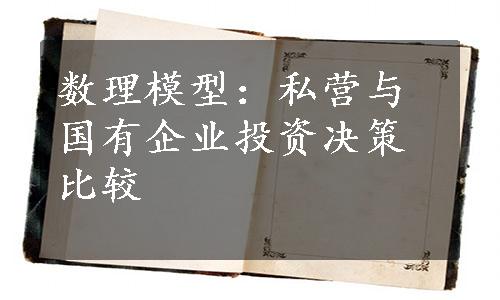 数理模型：私营与
国有企业投资决策
比较